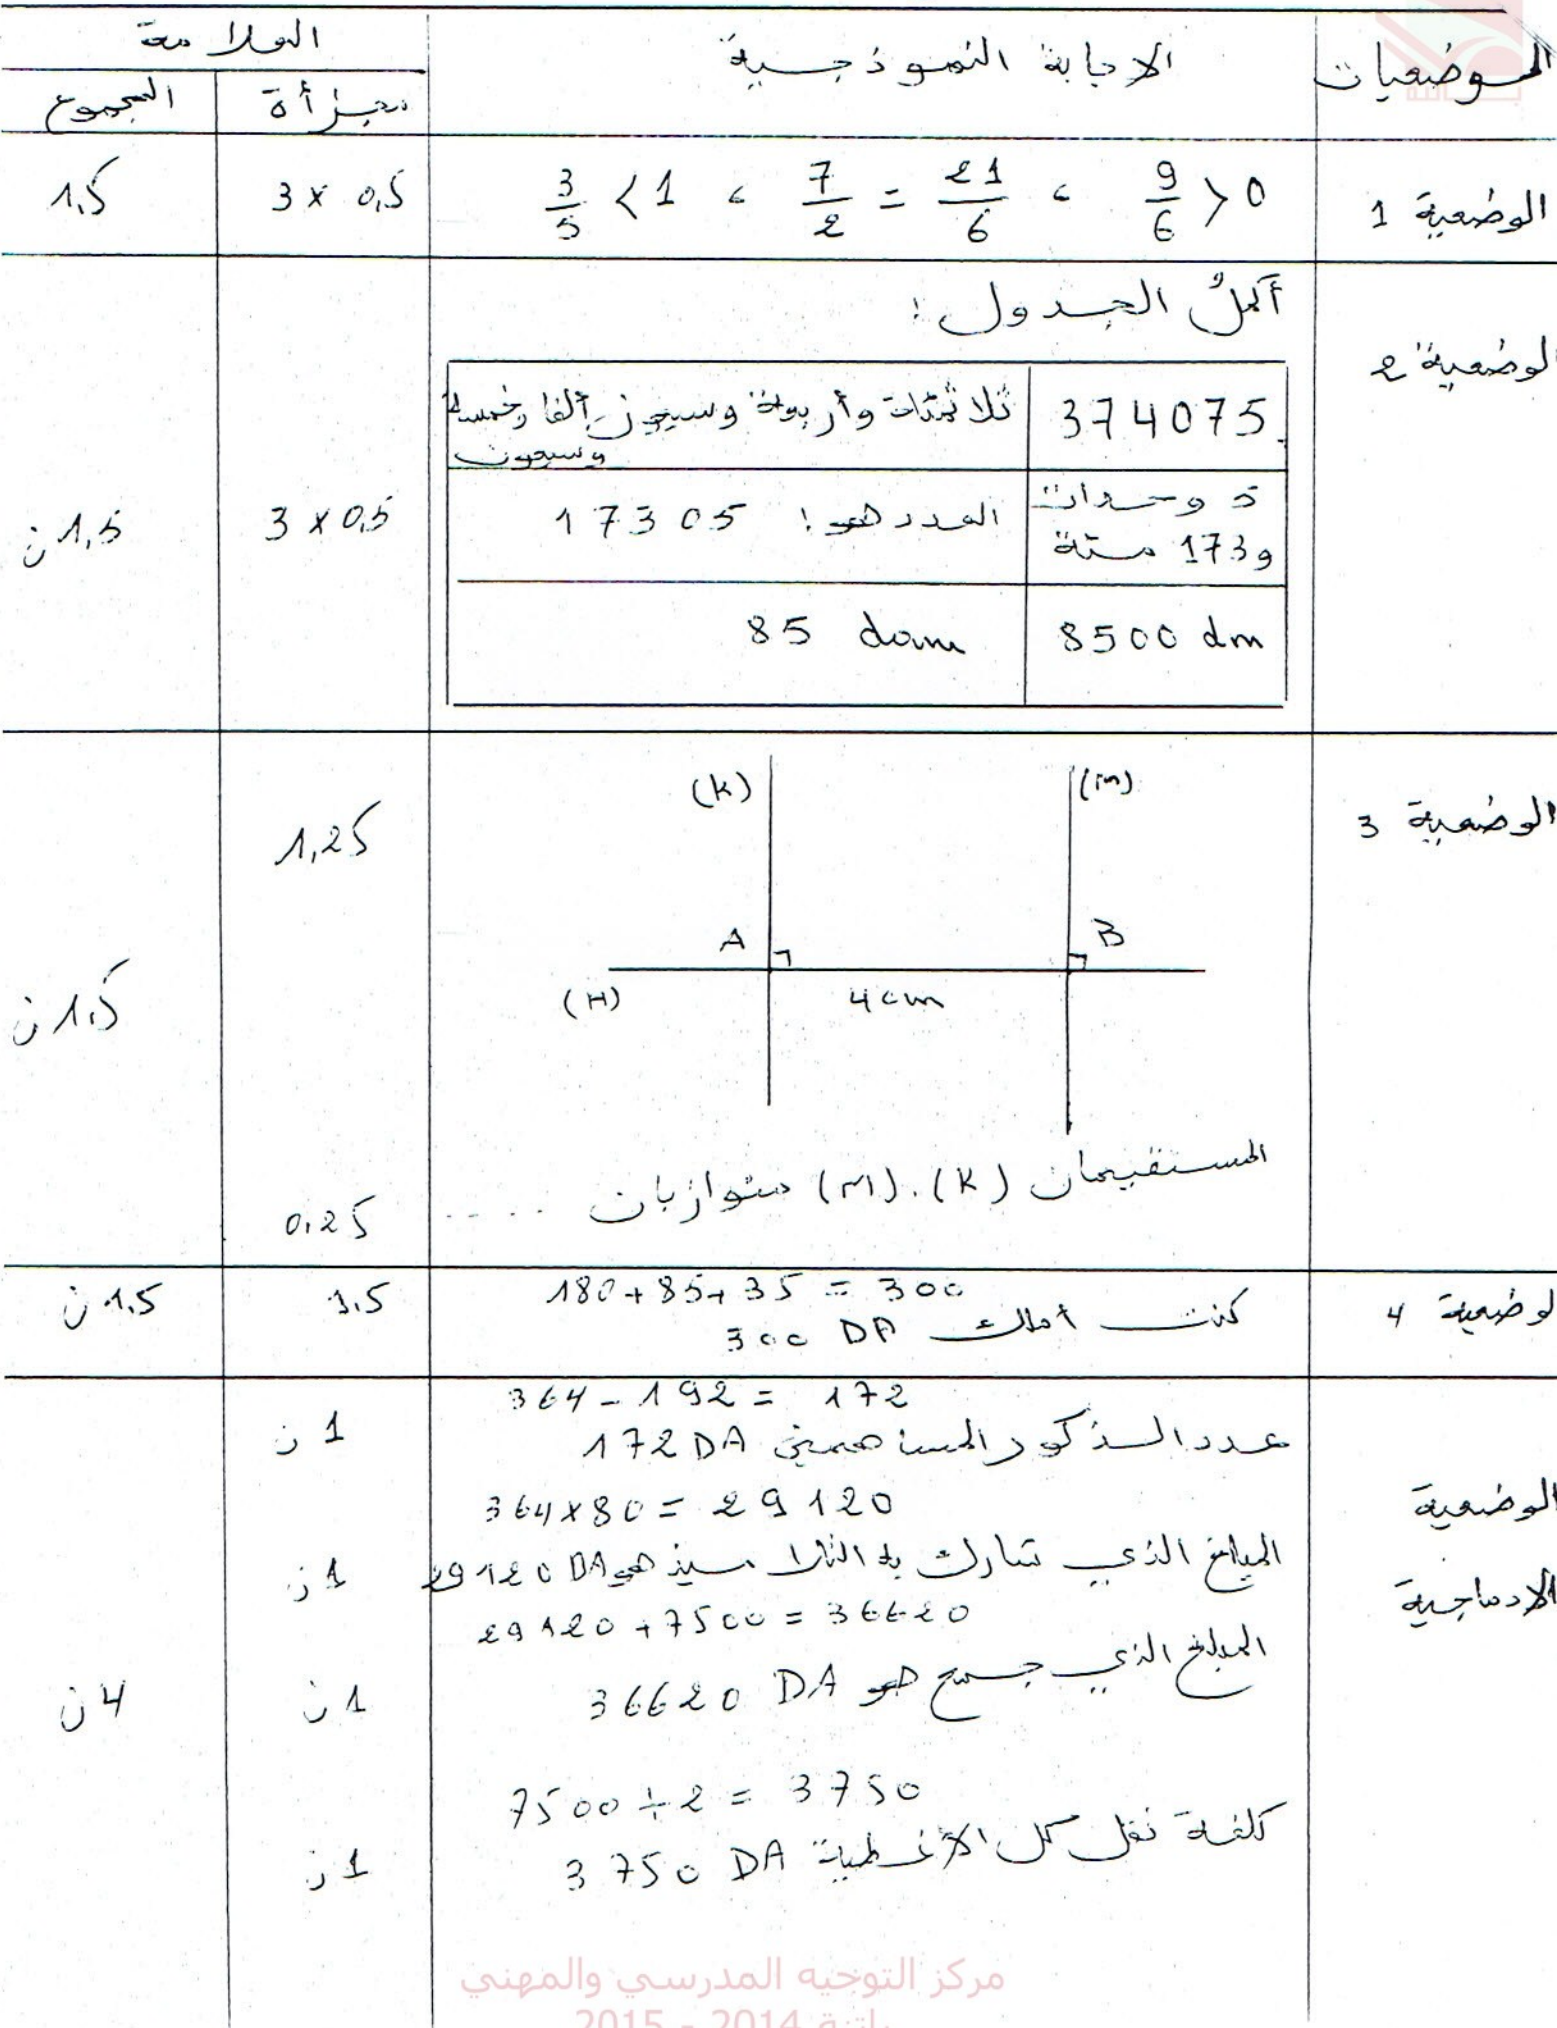 الوضعيات
الاجابة النموذجية
العلامة
مجزأة
المجموع
الوضعية 1
9/6 > 0 ، 7/2 = 21/6 ، 3/5 < 1
3 x 0,5
1,5
الوضعية 2
أكمل الجدول :
374075
ثلاثمئات وأربعة وسبعون ألفا وخمسة
وسبعون
5 وحدات
و 173 مئة
العدد هو : 17305
8500 dm
85 dam
3 x 0,5
1,5 ن
الوضعية 3
(K)
(m)
A
B
(H)
4 cm
1,25
المستقيمان (K) . (M) متوازيان ....
0,25
1,5 ن
الوضعية 4
180 + 85 + 35 = 300
كنت أملك 300 DA
1.5
1.5 ن
الوضعية
الادماجية
364 - 192 = 172
عدد الذكور المساهمين 172 DA
1 ن
364 x 80 = 29120
المبلغ الذي شارك به التلاميذ هو 29120 DA
1 ن
29120 + 7500 = 36620
المبلغ الذي جمع هو 36620 DA
1 ن
4 ن
7500 ÷ 2 = 3750
كلفة نقل كل الأغطية 3750 DA
1 ن
مركز التوجيه المدرسي والمهني
باتنة 2014 - 2015